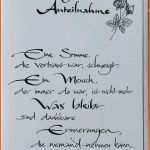 Anteilnahme
Eine Stimme,
die vertraut war, schweigt.
Ein Mensch,
der immer da war, ist nicht mehr
Was bleibt
sind dankbare
Erinnerungen,
die niemand nehmen kann.